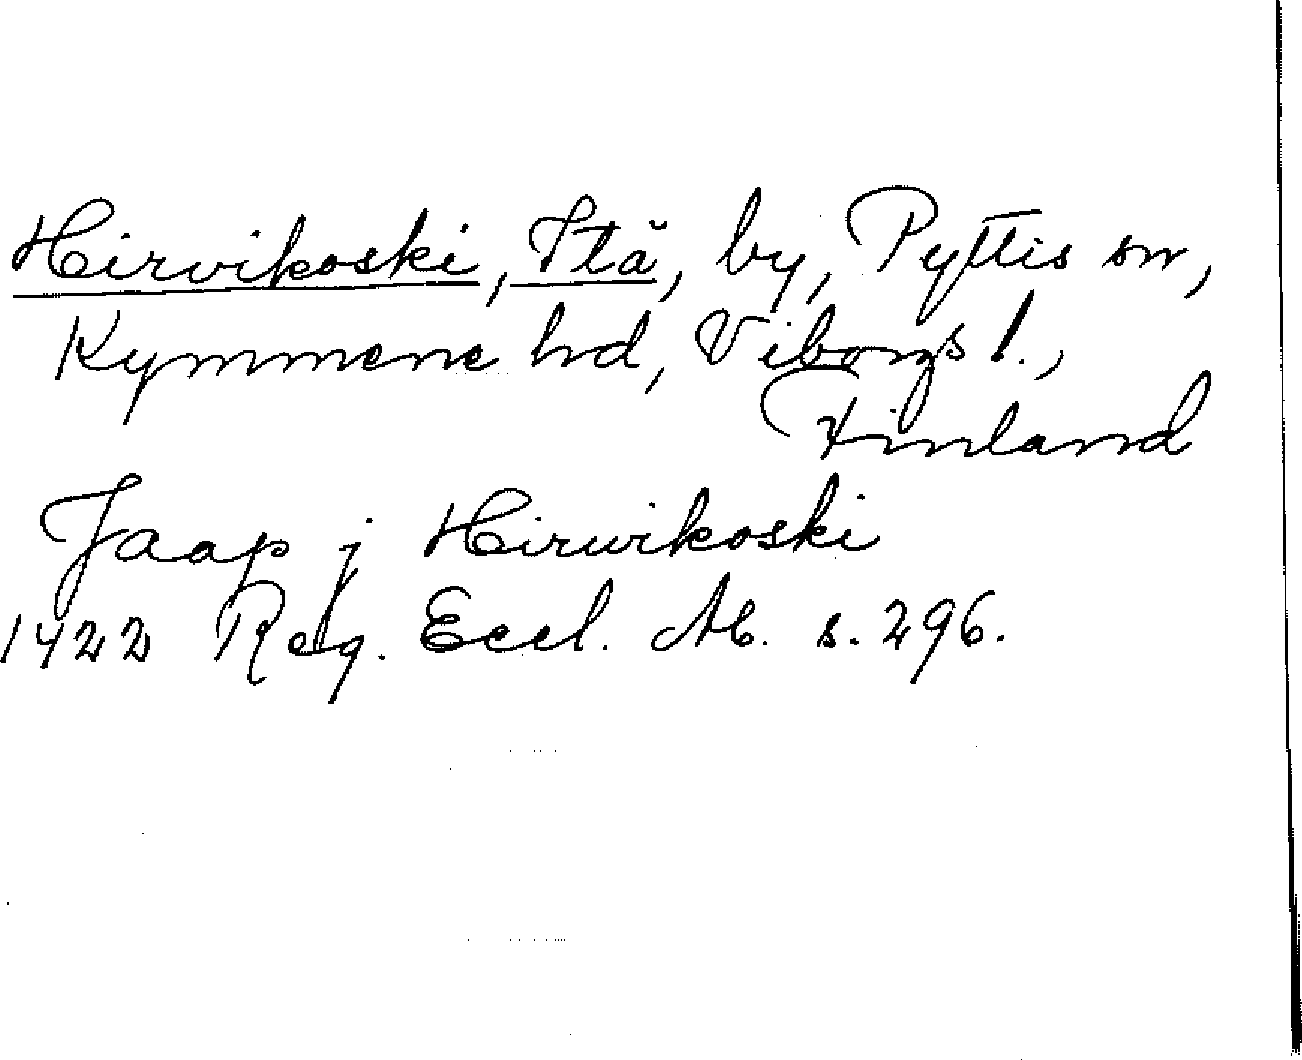 Hirvikoski, Itä, by, Pyttis sn,
Kymmene hd, Viborgs l.,
Finland
Jaap j Hirwikoski
1422 Reg. Eccl. Ab. s. 296.